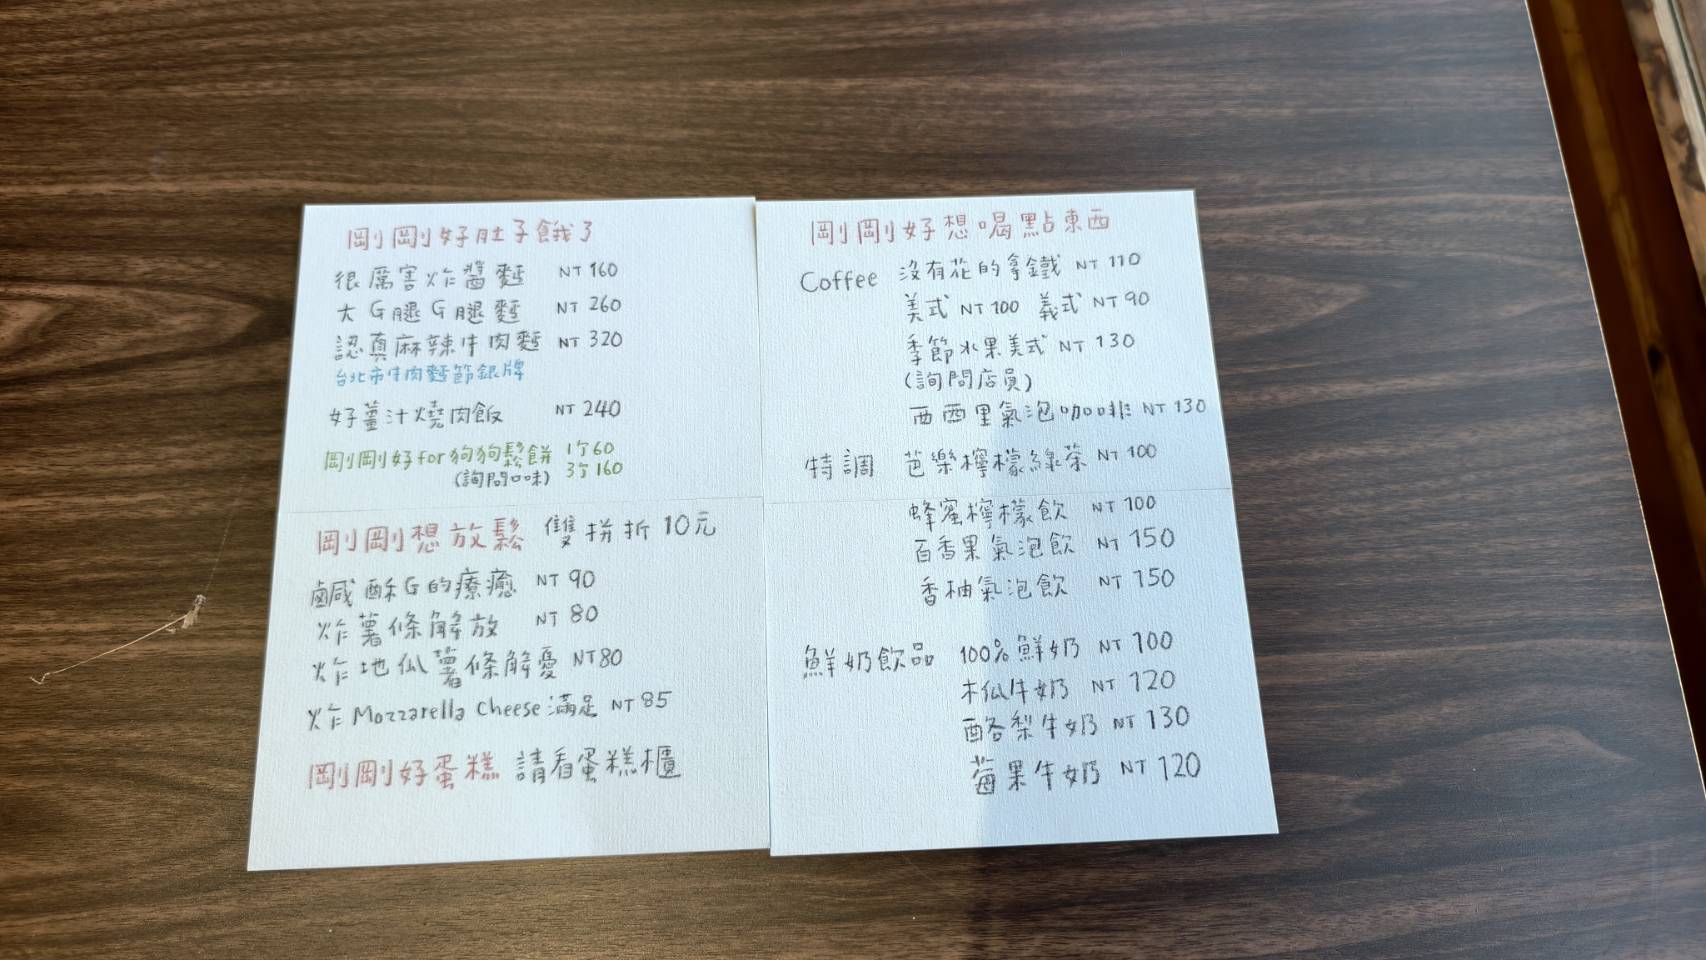 剛剛好肚子餓了
很厲害炸醬麵 NT 160
大G腿G腿麵 NT 260
認真麻辣牛肉麵 NT 320
台北市牛肉麵節銀牌
好薑汁燒肉飯 NT 240
剛剛好for狗狗鬆餅 1个60
(詢問口味) 3个160
剛剛想放鬆 雙拼折10元
鹹酥G的療癒 NT 90
炸薯條解放 NT 80
炸地瓜薯條解憂 NT80
炸Mozzarella Cheese滿足 NT 85
剛剛好蛋糕 請看蛋糕櫃
剛剛好想喝點東西
Coffee 沒有花的拿鐵 NT 110
美式 NT 100 義式 NT 90
季節水果美式 NT 130
(詢問店員)
西西里氣泡咖啡 NT 130
特調 芭樂檸檬綠茶 NT 100
蜂蜜檸檬飲 NT 100
百香果氣泡飲 NT 150
香柚氣泡飲 NT 150
鮮奶飲品 100%鮮奶 NT 100
木瓜牛奶 NT 120
酪梨牛奶 NT 130
莓果牛奶 NT 120